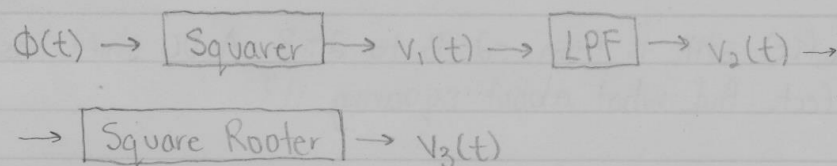 Φ(t) → Squarer → V₁(t) → LPF → V₂(t) →
→ Square Rooter → V₃(t)